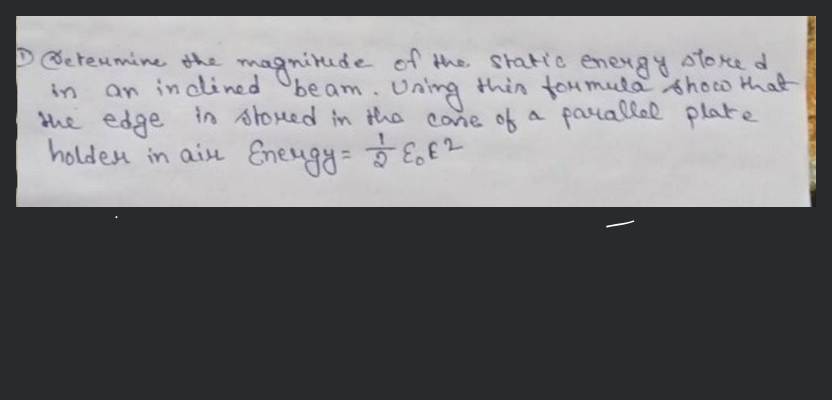 ① Determine the magnitude of the static energy stored
in an inclined beam. Using this formula show that
the edge is stored in the case of a parallel plate
holder in air Energy = 1/2 ε₀E²